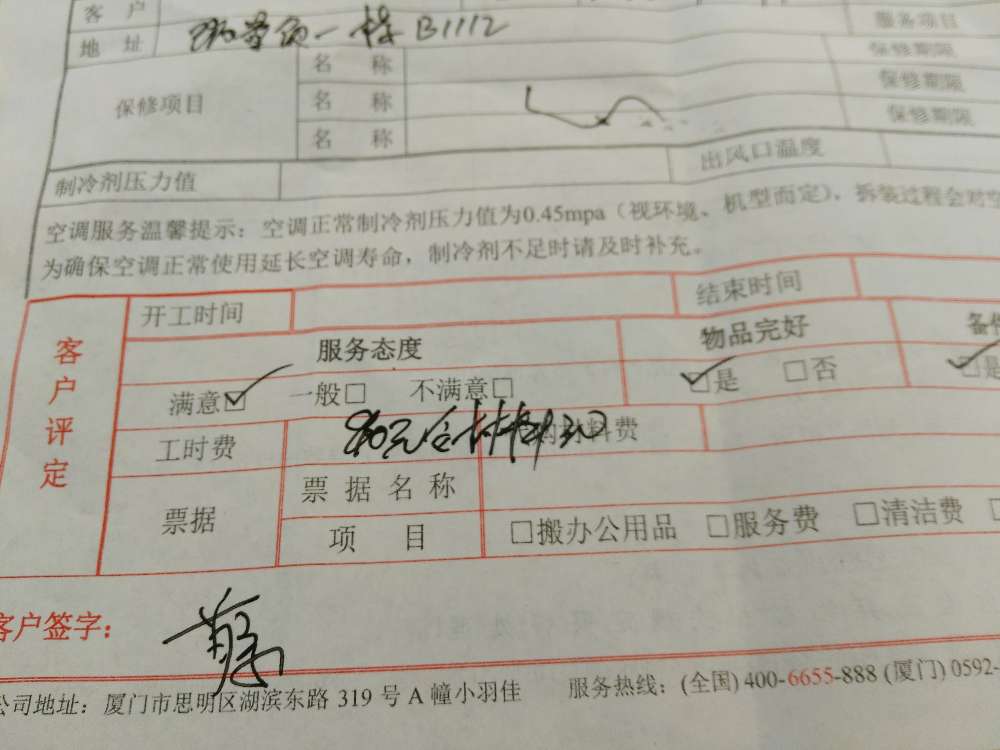 客 户 服务项目
地 址 一栋 B1112 保修期限
保修项目 名 称 保修期限
名 称 保修期限
名 称
制冷剂压力值 出风口温度
空调服务温馨提示：空调正常制冷剂压力值为0.45mpa（视环境、机型而定），拆装过程会对空
为确保空调正常使用延长空调寿命，制冷剂不足时请及时补充。
客户评定 开工时间 结束时间
服务态度 物品完好 备件
满意☑ 一般□ 不满意□ ☑是 □否 ☑是
工时费 材料费
票据 票据名称
项 目 □搬办公用品 □服务费 □清洁费
客户签字：
公司地址：厦门市思明区湖滨东路 319 号 A 幢小羽佳 服务热线：(全国) 400-6655-888 (厦门) 0592-